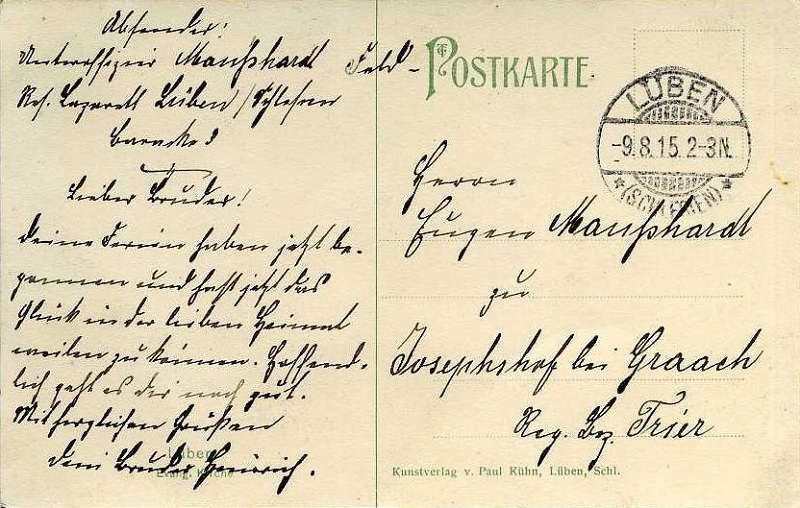 Absender:
Unteroffizier Maußhardt
Res. Lazarett Lüben / Schlesien
Baracke 3
Lieber Bruder!
Deine Ferien haben jetzt be-
gonnen und hast jetzt das
Glück in der lieben Heimat
weilen zu können. Hoffend-
lich geht es dir noch gut.
Mit herzlichen Grüßen
dein Bruder Heinrich.
Lüben
Evang. Kirche
Feld-
POSTKARTE
LÜBEN
-9.8.15.2-3N.
*(SCHLESIEN)*
Herrn
Eugen Maußhardt
zu
Josephshof bei Graach
Reg. Bez. Trier
Kunstverlag v. Paul Kühn, Lüben, Schl.